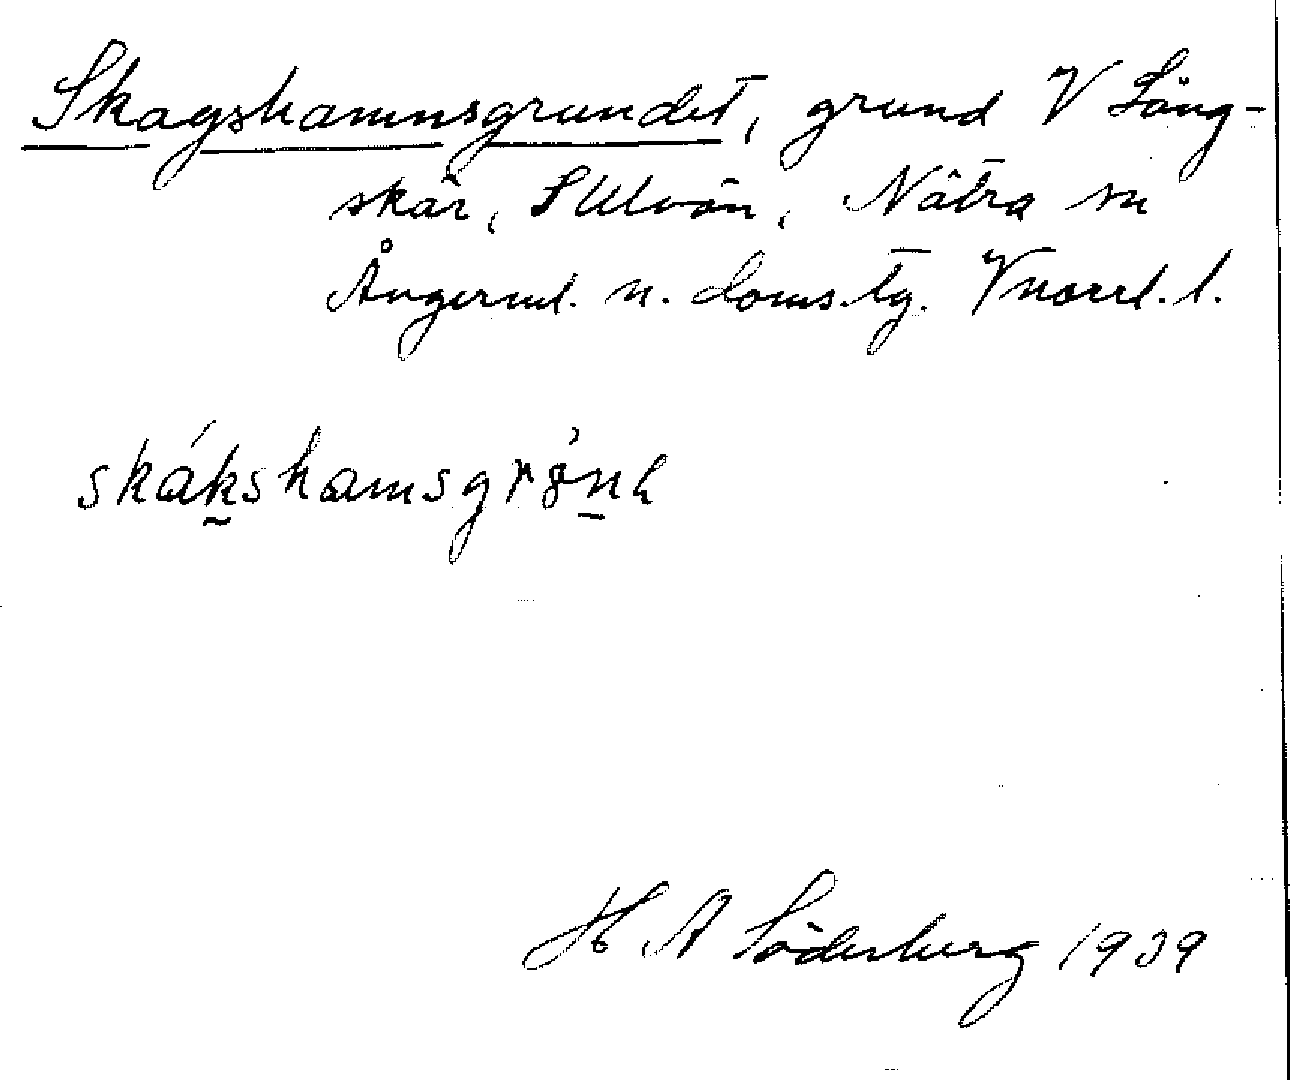 Skagshamnsgrundet, grund V Lång-
skär, S Ulvön, Nätra sn
Ångerml. n. doms.tg. Vnorrl. l.
skákshamsgrǿn
H A Söderberg 1939